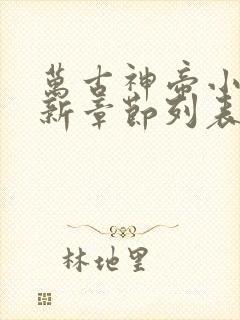 萬古神帝小
新章節列表
林地里